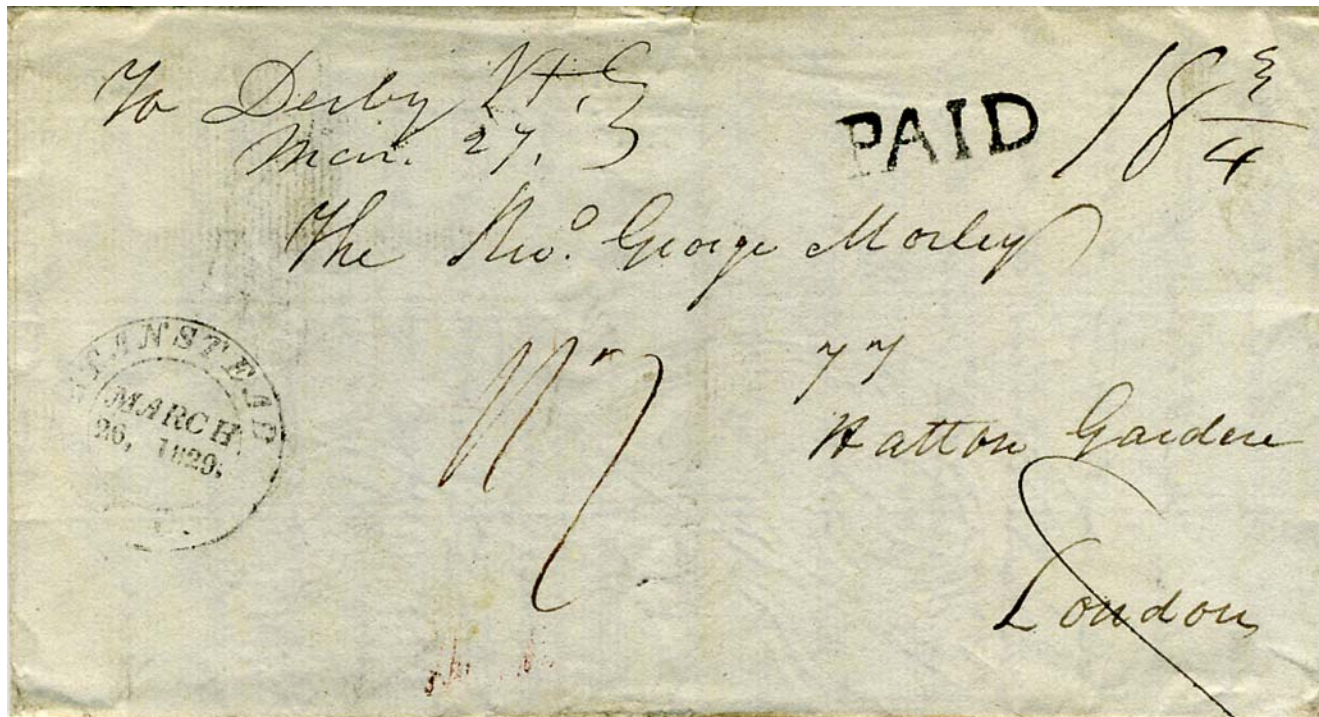 To Derby Vt.
Mar. 27.
PAID
18 3/4
The Revd. George Morley
77
Hatton Garden
London
STANSTEAD
MARCH
26, 1829.